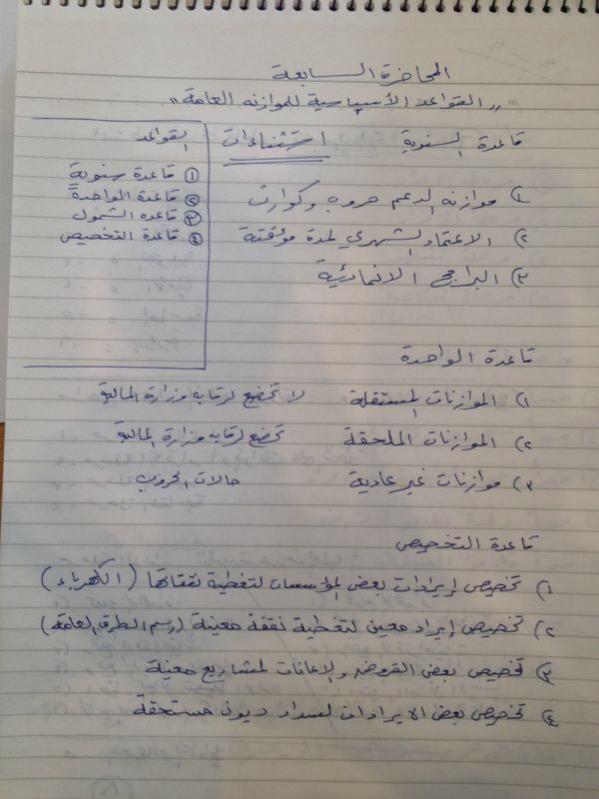 المحاضرة السابعة
"القواعد الأساسية للموازنه العامة"
قاعدة السنوية استثناءات
١) موازنه الدعم حروب وكوارث
٢) الاعتماد الشهري لمدة مؤقتة
٣) البرامج الانمائية
القواعد
١ قاعدة سنوية
٢ قاعدة الواحدة
٣ قاعده الشمول
٤ قاعدة التخصيص
قاعدة الواحدة
١) الموازنات المستقلة لا تخضع لرقابه وزارة المالية
٢) الموازنات الملحقة تخضع لرقابه وزارة المالية
٣) موازنات غير عادية حالات الحروب
قاعدة التخصيص
١) تخصيص إيرادات بعض المؤسسات لتغطية نفقاتها (الكهرباء)
٢) تخصيص إيراد معين لتغطية نفقة معينة (رسم الطرق العامة)
٣) تخصيص بعض القروض والإعانات لمشاريع معينة
٤) تخصيص بعض الايرادات لسداد ديون مستحقة